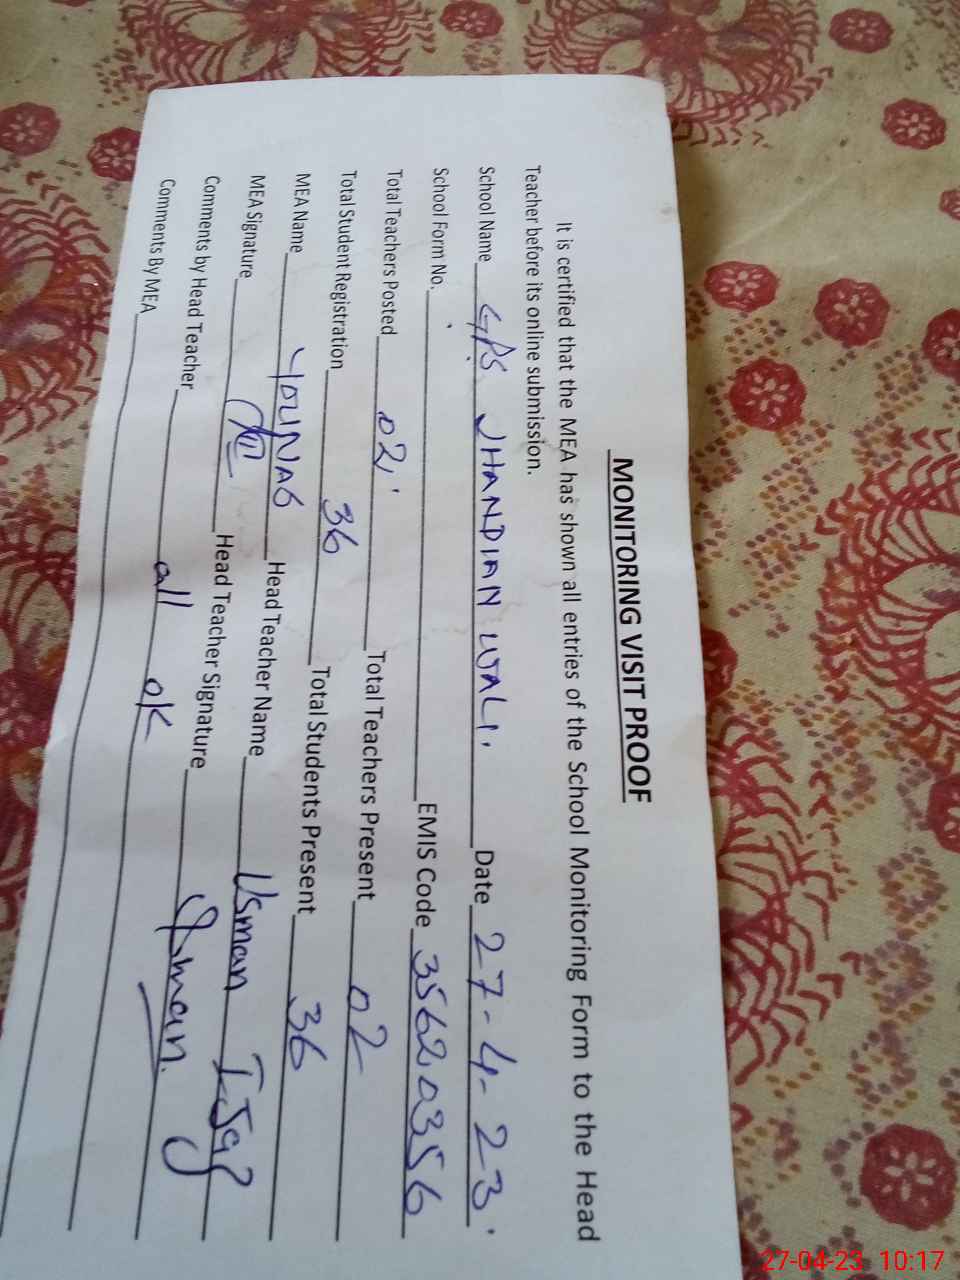 MONITORING VISIT PROOF
It is certified that the MEA has shown all entries of the School Monitoring Form to the Head
Teacher before its online submission.
School Name GPS JHANDIAN WALI. Date 27-4-23
School Form No. EMIS Code 35620356
Total Teachers Posted 02 Total Teachers Present 02
Total Student Registration 36 Total Students Present 36
MEA Name YOUNAS Head Teacher Name Usman Ijaz
MEA Signature Head Teacher Signature Usman.
Comments by Head Teacher all ok
Comments By MEA
27-04-23 10:17